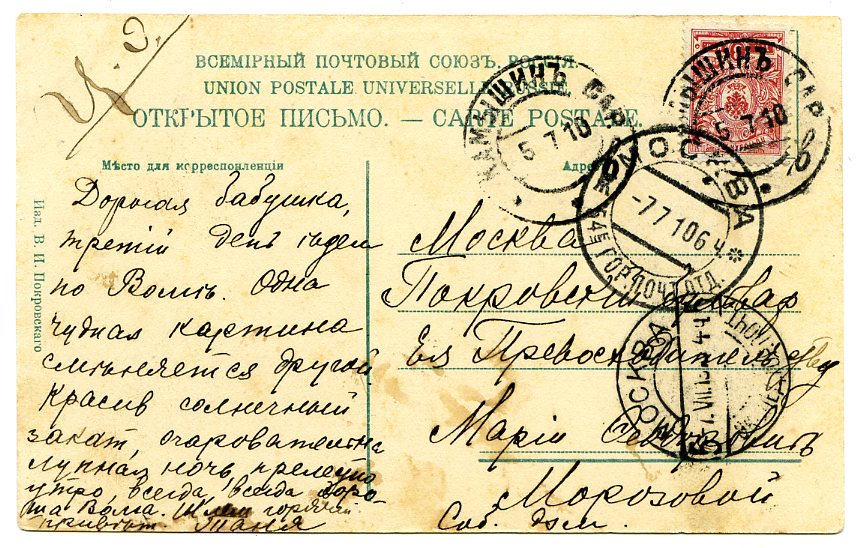 ц. э.
ВСЕМІРНЫЙ ПОЧТОВЫЙ СОЮЗЪ. РОССІЯ.
UNION POSTALE UNIVERSELLE. RUSSIE.
ОТКРЫТОЕ ПИСЬМО. — CARTE POSTALE.
Мѣсто для корреспонденціи
Адресъ
КАМЫШИНЪ САР.
5 7 10
КАМЫШИНЪ САР.
5 7 10
МОСКВА
-7 7 10 6 Ч.
ГОР. ПОЧТ. ОТД.
МОСКВА
Изд. В. И. Покровскаго
Дорогая бабушка,
третій день ѣдем
по Волгѣ. Одна
чудная картина
смѣняется другой.
Красив солнечный
закат, очаровательна
лунная ночь, прелестно
утро, всегда, всегда хоро-
ша Волга. Шлем горячій
привѣт. Таня
Москва
Покровский бульвар
Ея Превосходительству
Маріи
Морозовой
Соб. дом.